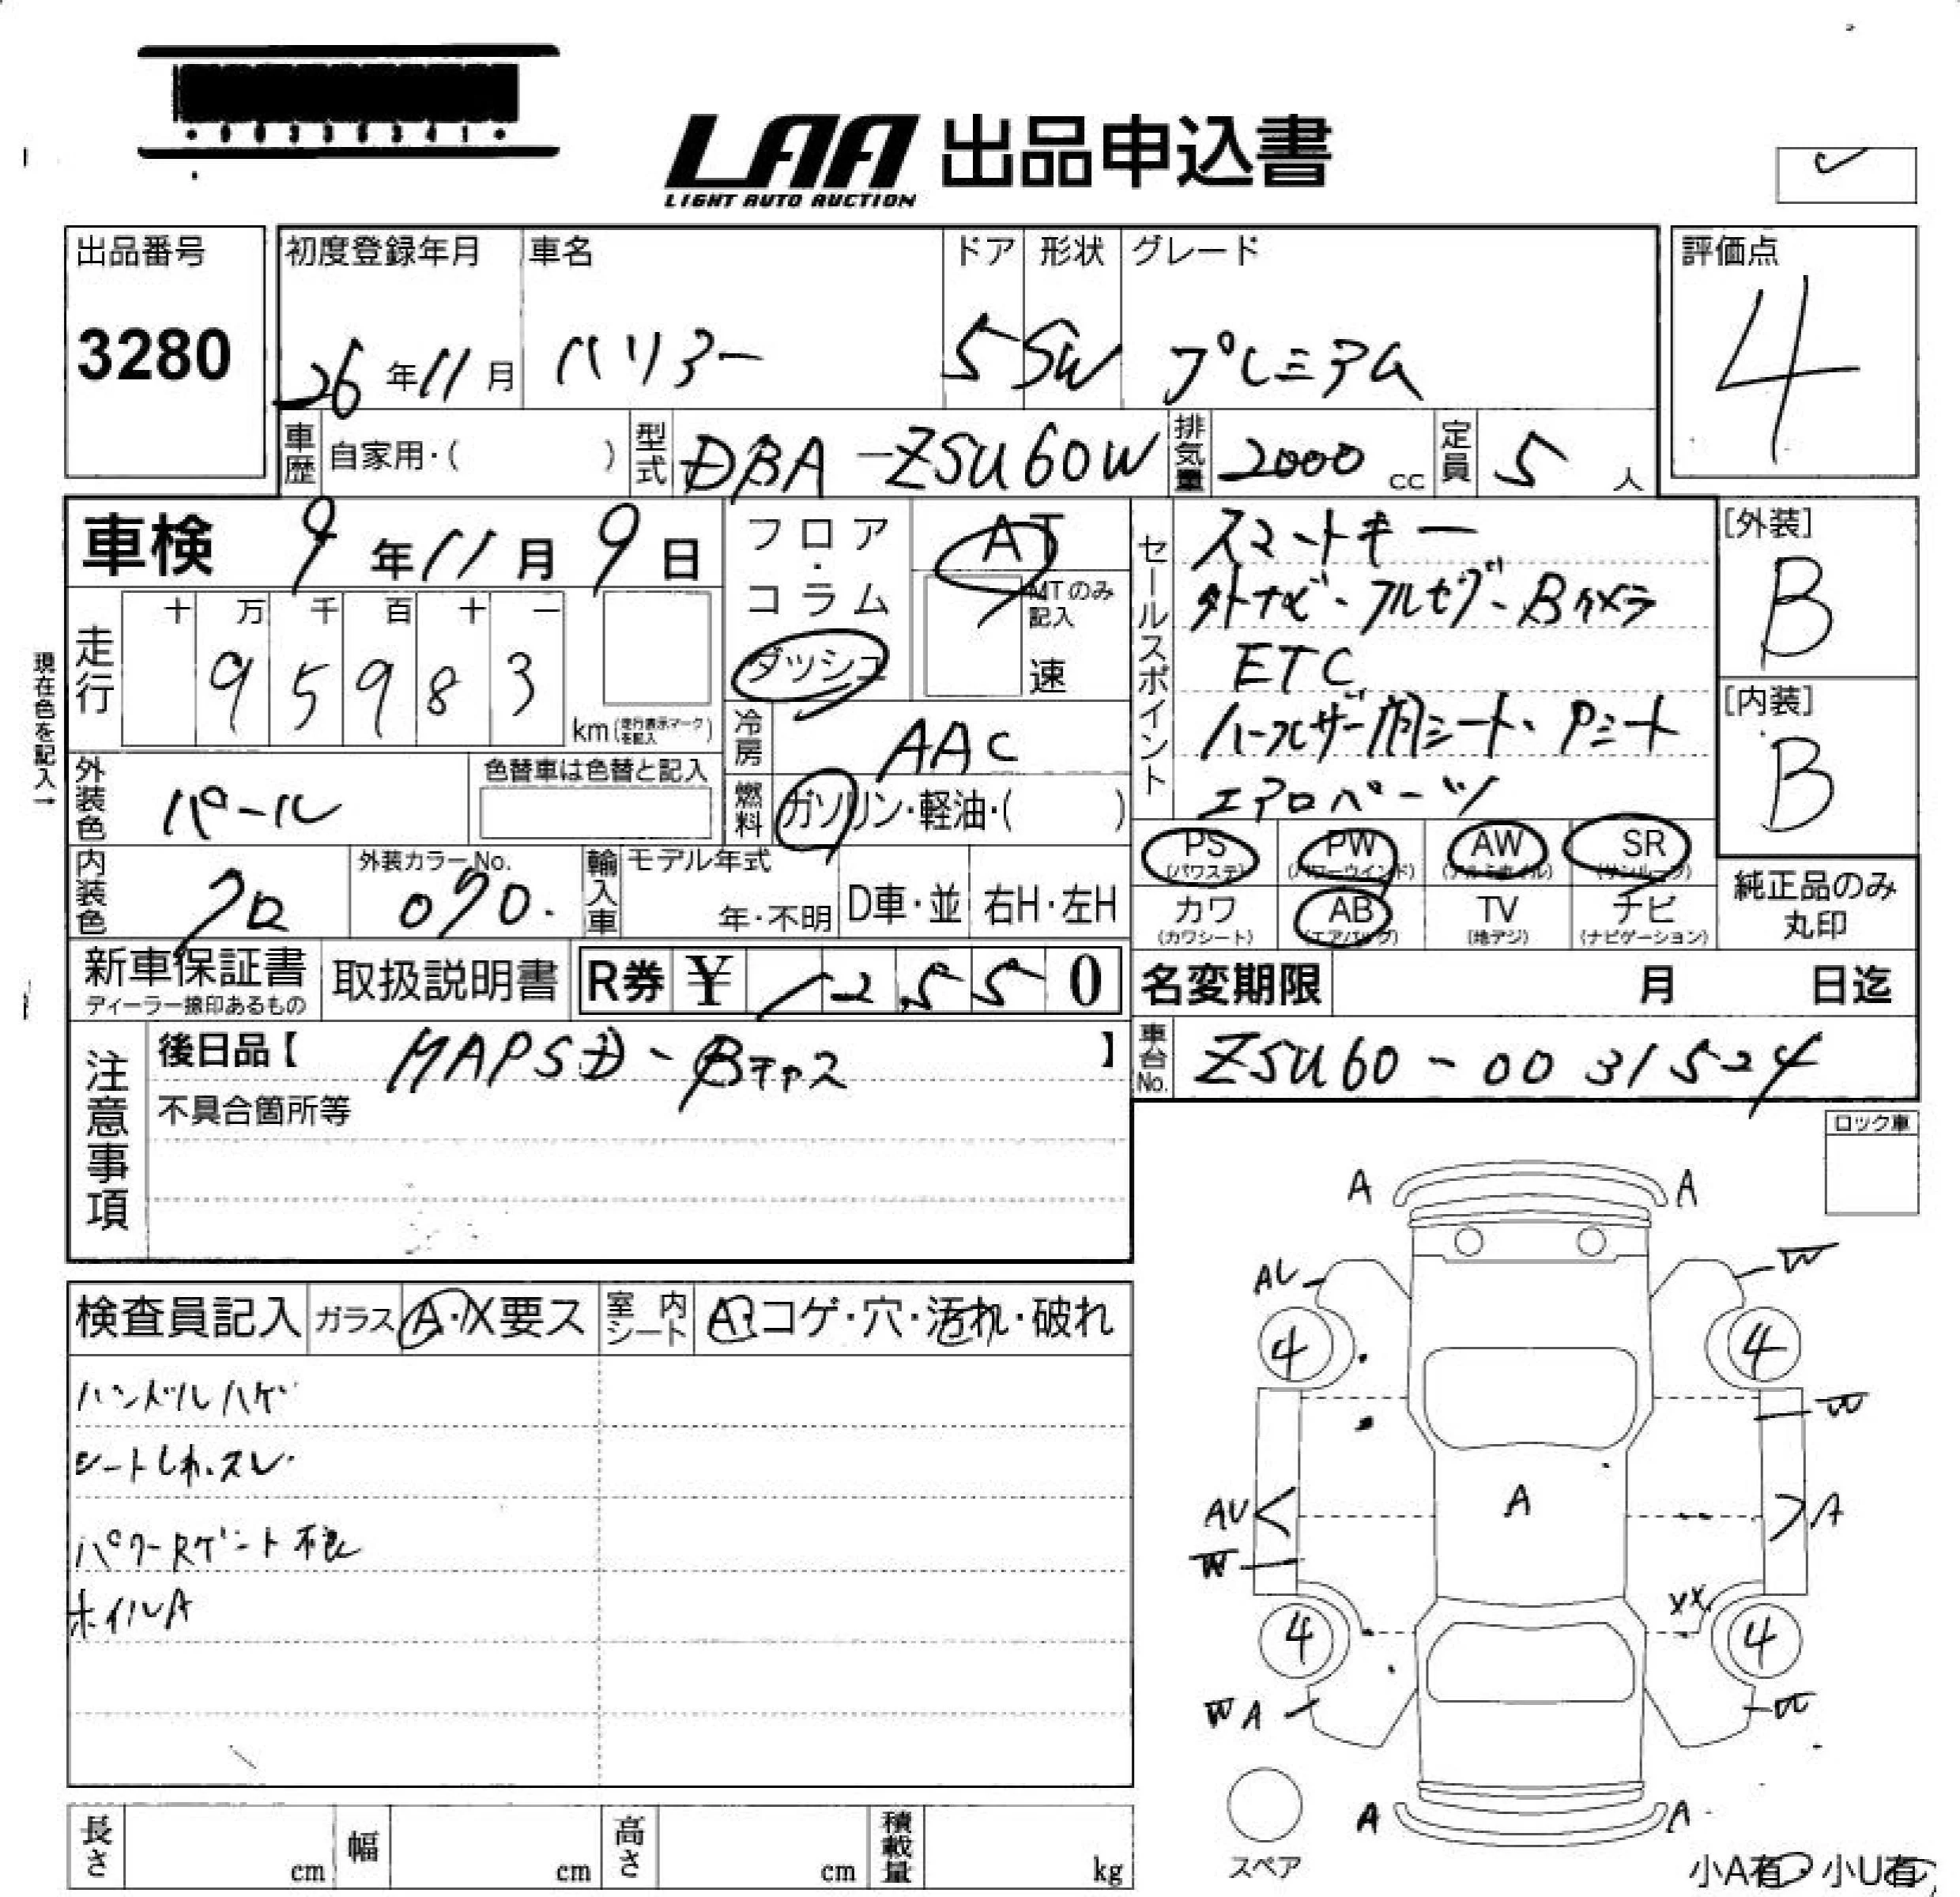 LAA 出品申込書
LIGHT AUTO AUCTION
出品番号
3280
初度登録年月
26年11月
車名
ハリアー
ドア
5
形状
SW
グレード
プレミアム
評価点
4
車歴 自家用・( )
型式 DBA-ZSU60W
排気量 2000 cc
定員 5 人
車検 9年11月9日
フロア・コラム
ダッシュ
AT
MTのみ記入
速
セールスポイント
スマートキー
外ナビ・フルセグ・Bカメラ
ETC
ハーフレザー調シート・Pシート
エアロパーツ
[外装]
B
[内装]
B
現在色を記入→
走行
十 万 千 百 十 一
9 5 9 8 3
km(走行表示マークを記入)
冷房 AAC
外装色 パール
色替車は色替と記入
燃料 ガソリン・軽油・( )
内装色 クロ
外装カラーNo.
070.
輸入車 モデル年式
年・不明
D車・並
右H・左H
PS
(パワステ)
PW
(パワーウインド)
AW
(アルミホイル)
SR
(サンルーフ)
カワ
(カワシート)
AB
(エアバッグ)
TV
(地デジ)
ナビ
(ナビゲーション)
純正品のみ
丸印
新車保証書
ディーラー捺印あるもの
取扱説明書
R券 ¥ 12,550
名変期限 月 日迄
注意事項
後日品【 】
不具合箇所等
車台No. ZSU60-0031524
ロック車
検査員記入
ガラス A・X要ス
室内シート A・コゲ・穴・汚れ・破れ
ハンドルハゲ
シートしわ、スレ
パワーRゲート不良
ホイルA
A A
AU W
4 4
W
AU A A
W
XX
4 4
W A W
A A
スペア
小A有・小U有
長さ cm
幅 cm
高さ cm
積載量 kg